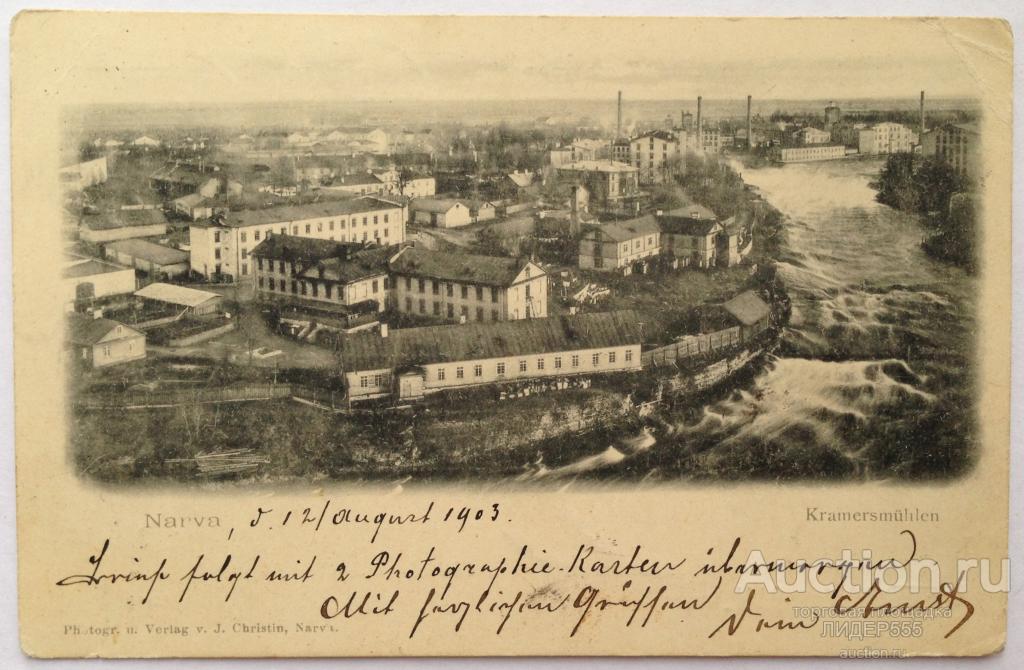 Narva, d. 12/August 1903.
Kramersmühlen
Brief folgt mit 2 Photographie-Karten übermorgen
Mit herzlichen Grüssen
Dein Ernst
Photogr. u. Verlag v. J. Christin, Narva.
Auction.ru
торговая площадка
ЛИДЕР555
auction.ru